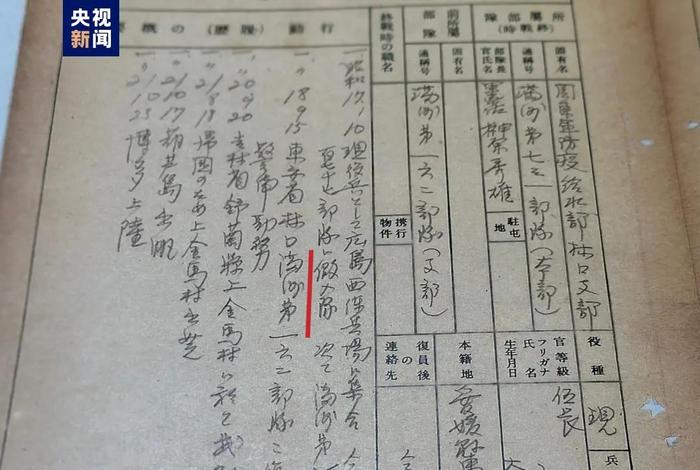 央视新闻
行動（履歴）の概
所屬部隊（終戰時）
固有名
関東軍防疫給水部林口支部
通稱号
満洲第七三一部隊（本部）
部隊長官氏名
榊原秀雄
駐屯地
前所屬部隊
固有名
通稱号
満洲第一六二部隊（支部）
終戰時の職名
携行物件
役種
現
兵
官等級
伍長
フリガナ
氏名
生年月日
本籍地
愛媛
復員後の連絡先
一昭和17、10 現役兵として広島西練兵場に集合
部隊に仮入隊 次で満洲第
一〃 18 9 15 東安省林口満洲第一六二部隊
警備勤務
一〃 20 9 20 吉林省舒蘭縣上金馬村に於て
一〃 21 8 18 帰国のため上金馬村出発
一〃 21 10 17 葫芦島出帆
一〃 21 10 25 博多上陸